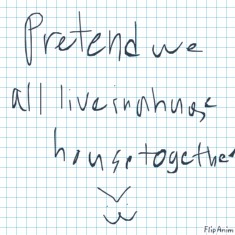 Pretend we
all live in a huge
house together
FlipAnim